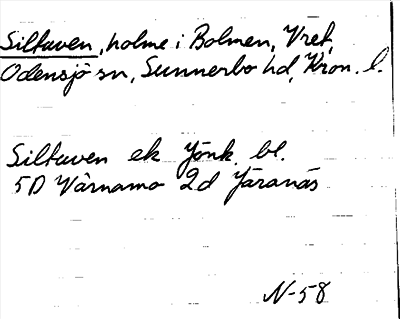 Siltuven, holme i Bolmen, Vret,
Odensjö sn, Sunnerbo hd, Kron. l.
Siltuven ek Jönk. bl.
5D Värnamo 2d Järanäs
N-58